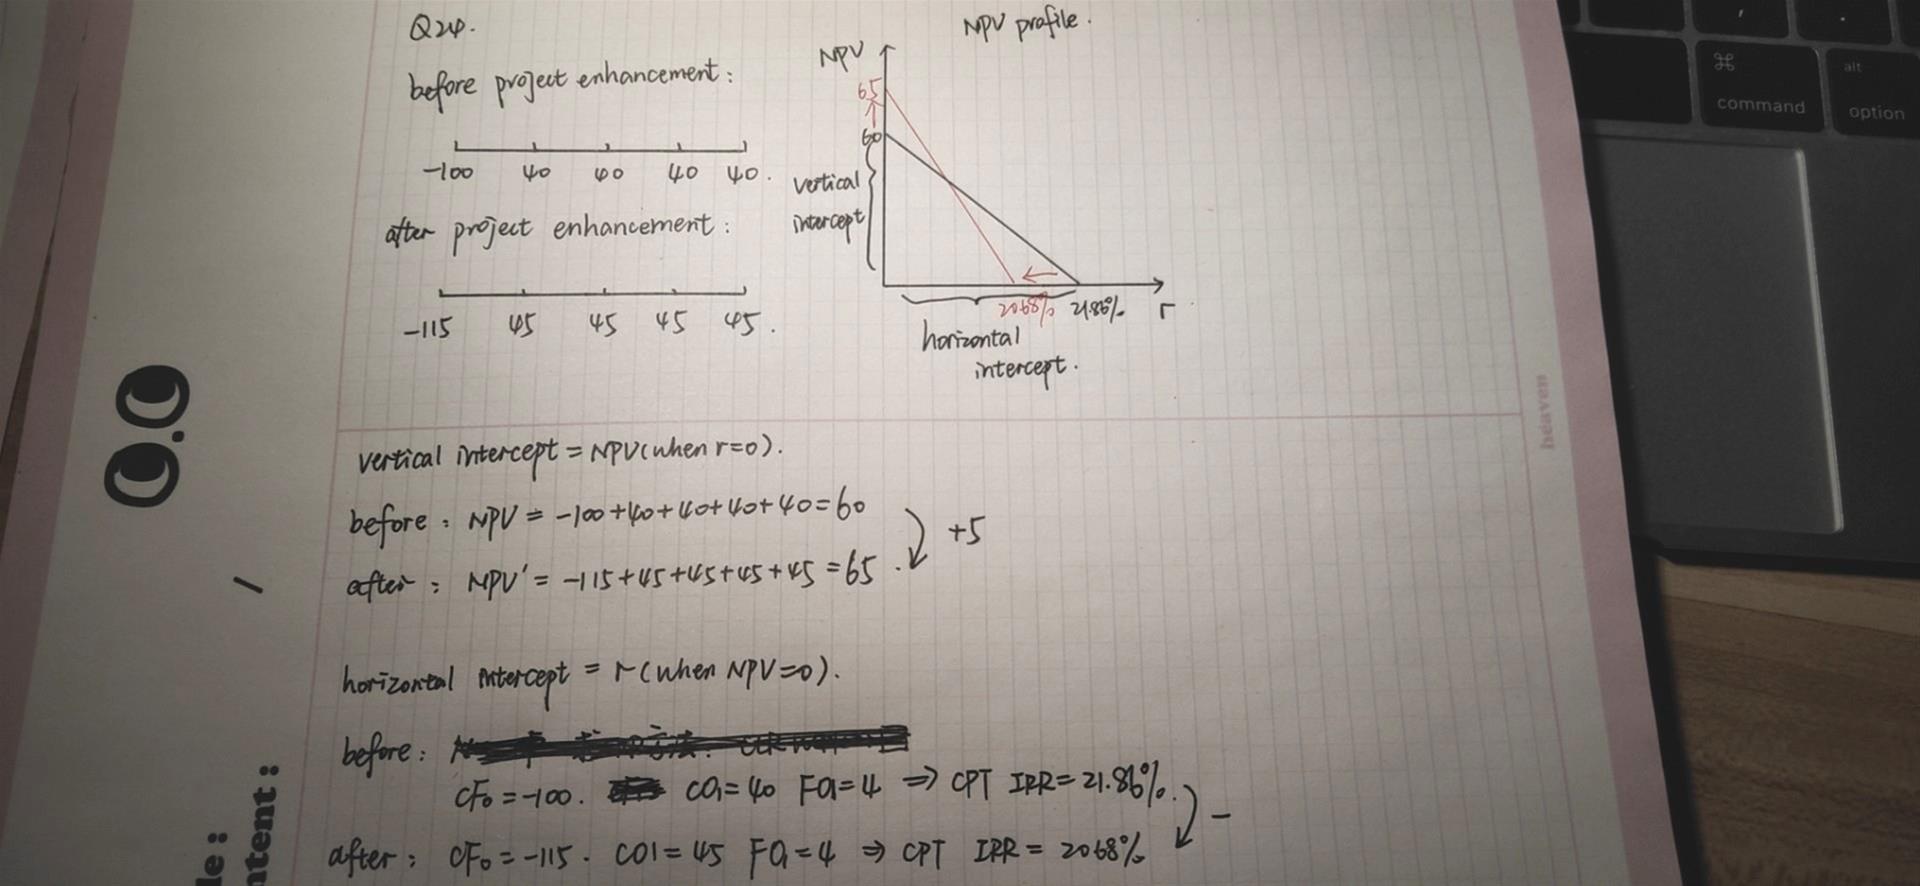 Q24.
before project enhancement:
-100 40 40 40 40.
after project enhancement:
-115 45 45 45 45.
NPV profile.
NPV
65
60
vertical
intercept
20.68% 21.86% r
horizontal
intercept.
vertical intercept = NPV (when r=0).
before: NPV = -100+40+40+40+40=60
after: NPV' = -115+45+45+45+45=65.
+5
horizontal intercept = r (when NPV=0).
before:
CF0=-100. C01=40 F01=4 ⇒ CPT IRR=21.86%.
after: CF0=-115. C01=45 F01=4 ⇒ CPT IRR = 20.68%
-
O.O
/
heaven
command
alt
option